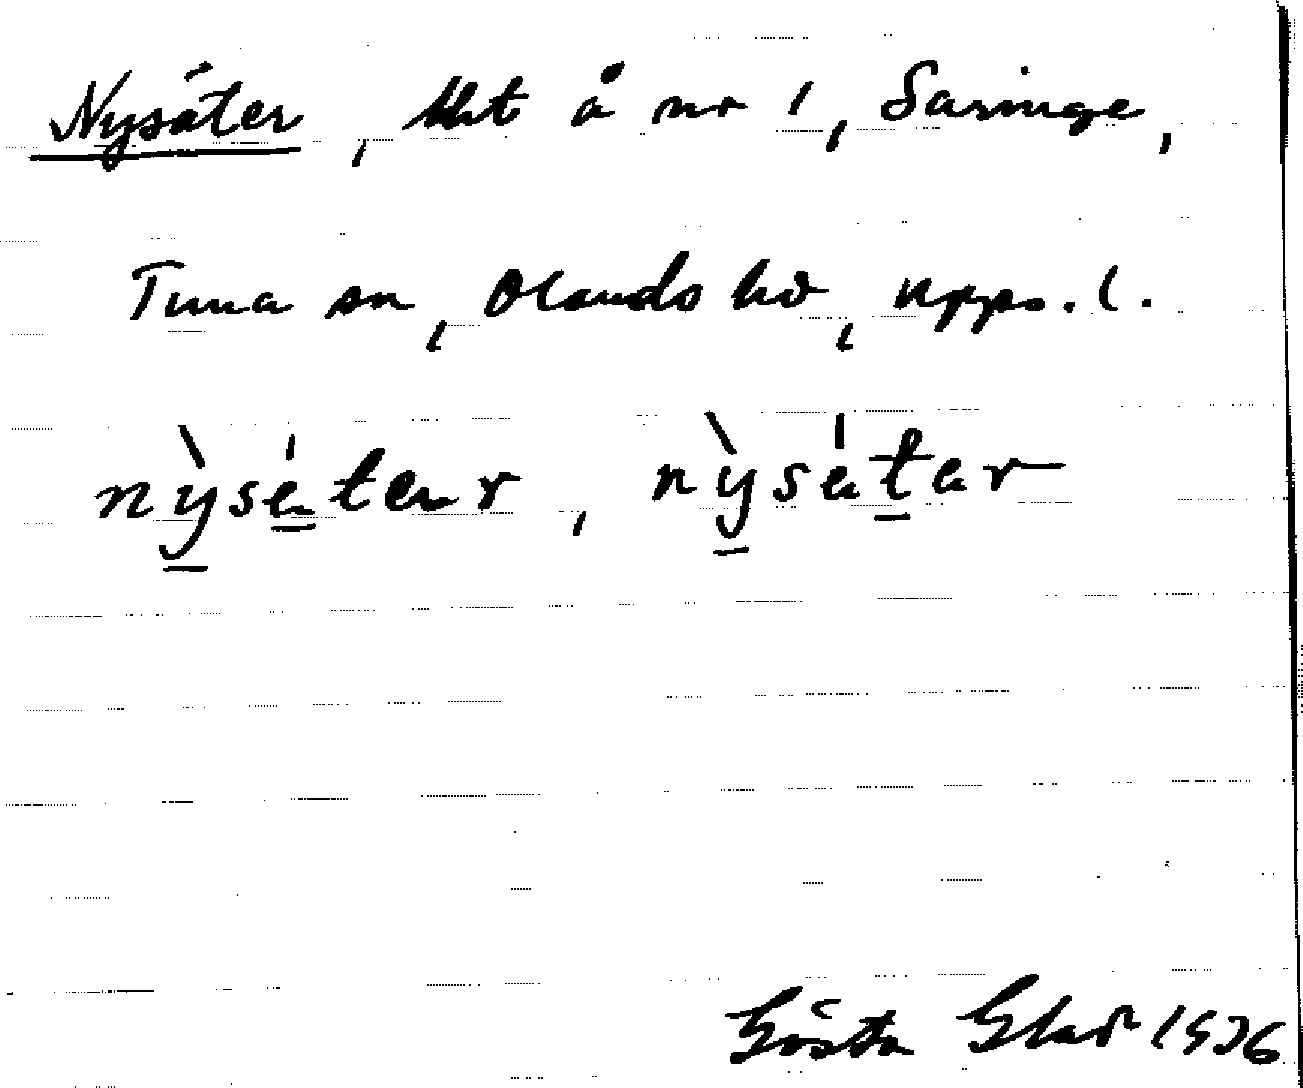 Nysäter, tlht å nr 1, Saringe,
Tuna sn, Olands hd, Upps. l.
nỳsétear, nỳsétar
Gösta 1936